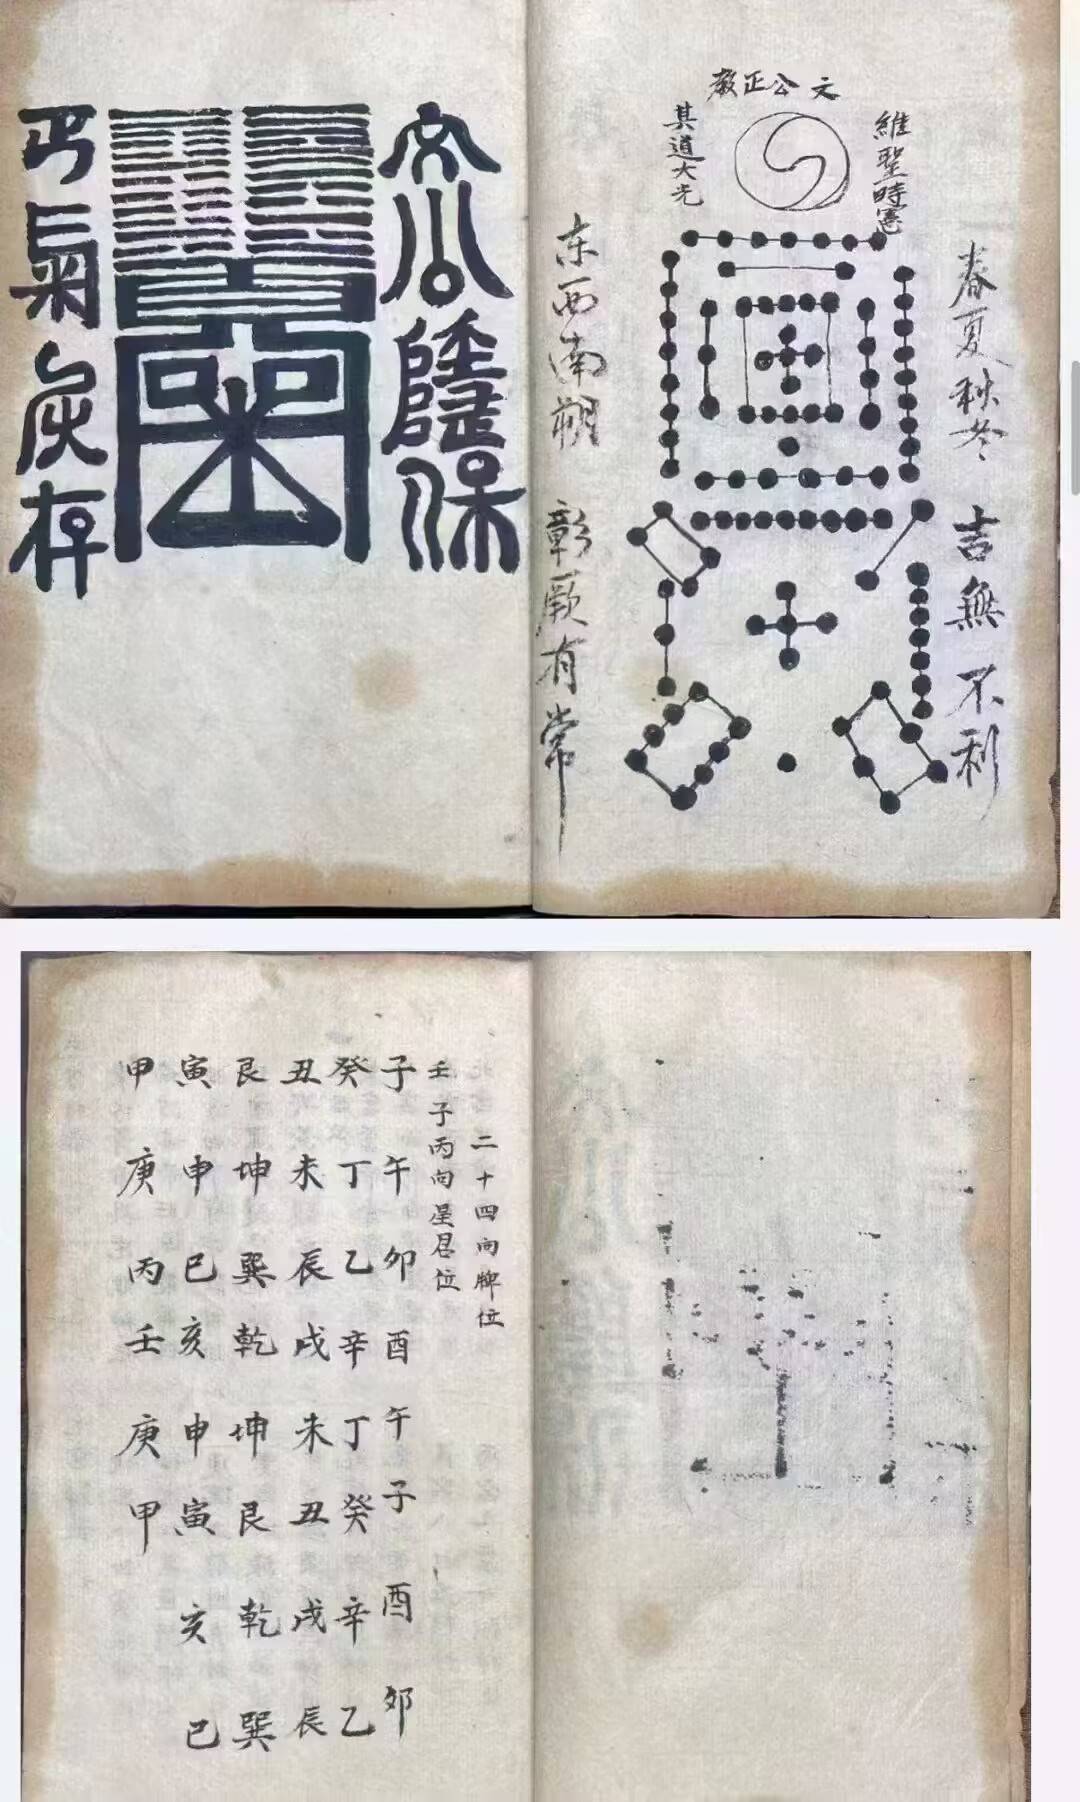 文公正教
維聖時憲
其道大光
春夏秋冬 吉無不利
东西南朔 彰厥有常
文公保
氣存
二十四向牌位
壬子丙向星位
子午卯酉午子酉夘
癸丁乙辛丁癸辛乙
丑未辰戌未丑戌辰
艮坤巽乾坤艮乾巽
寅申巳亥申寅亥巳
甲庚丙壬庚甲